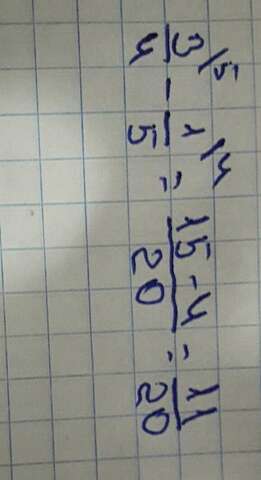 3/4 /5 - 1/5 /4 = 15-4/20 = 11/20